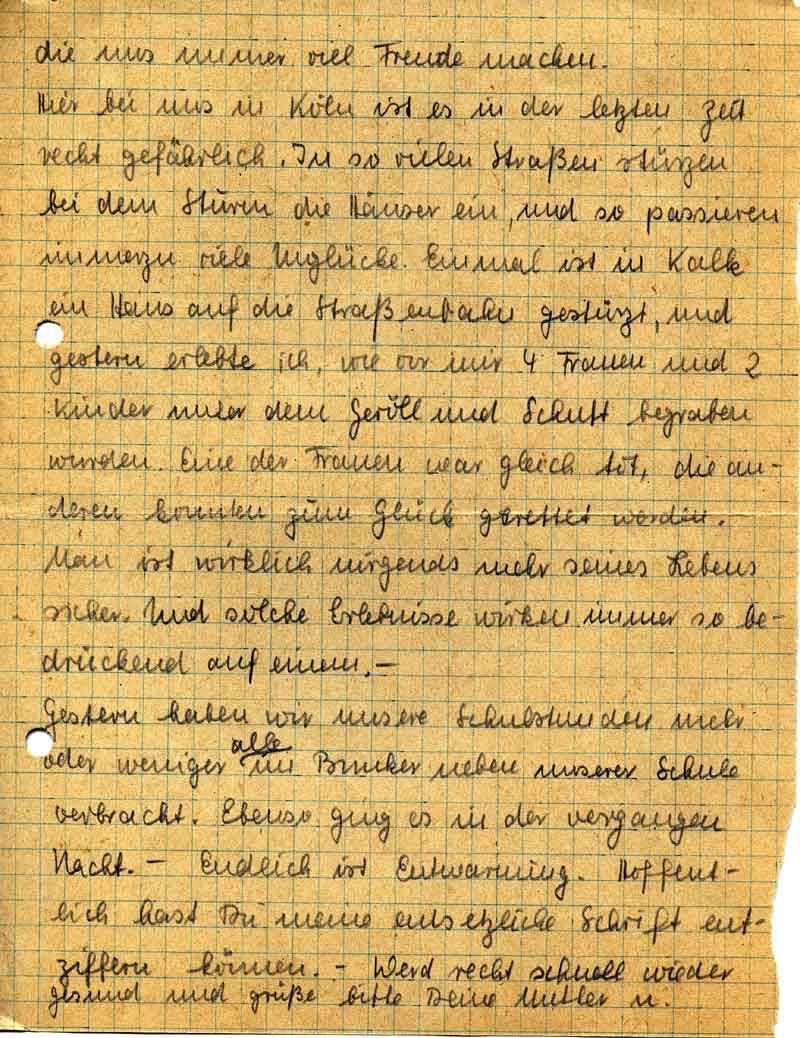 die uns immer viel Freude machen.
Hier bei uns in Köln ist es in der letzten Zeit
recht gefährlich. In so vielen Straßen stürzen
bei dem Sturm die Häuser ein, und so passieren
immerzu viele Unglücke. Einmal ist in Kalk
ein Haus auf die Straßenbahn gestürzt, und
gestern erlebte ich, wie vor mir 4 Frauen und 2
Kinder unter dem Geröll und Schutt begraben
wurden. Eine der Frauen war gleich tot, die an-
deren konnten zum Glück gerettet werden.
Man ist wirklich nirgends mehr seines Lebens
sicher. Und solche Erlebnisse wirken immer so be-
drückend auf einem. –
Gestern haben wir unsere Schulstunden mehr
oder weniger alle im Bunker neben unserer Schule
verbracht. Ebenso ging es in der vergangen
Nacht. – Endlich ist Entwarnung. Hoffent-
lich hast Du meine entsetzliche Schrift ent-
ziffern können. – Werd recht schnell wieder
gesund und grüße bitte Deine Mutter u.